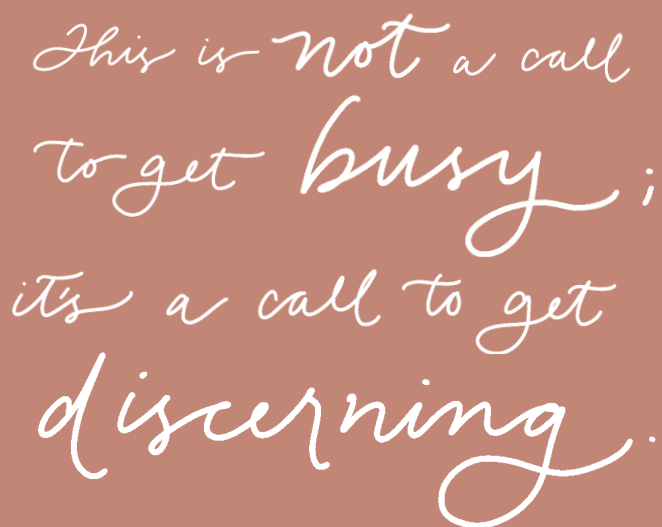 This is not a call
to get busy;
it's a call to get
discerning.